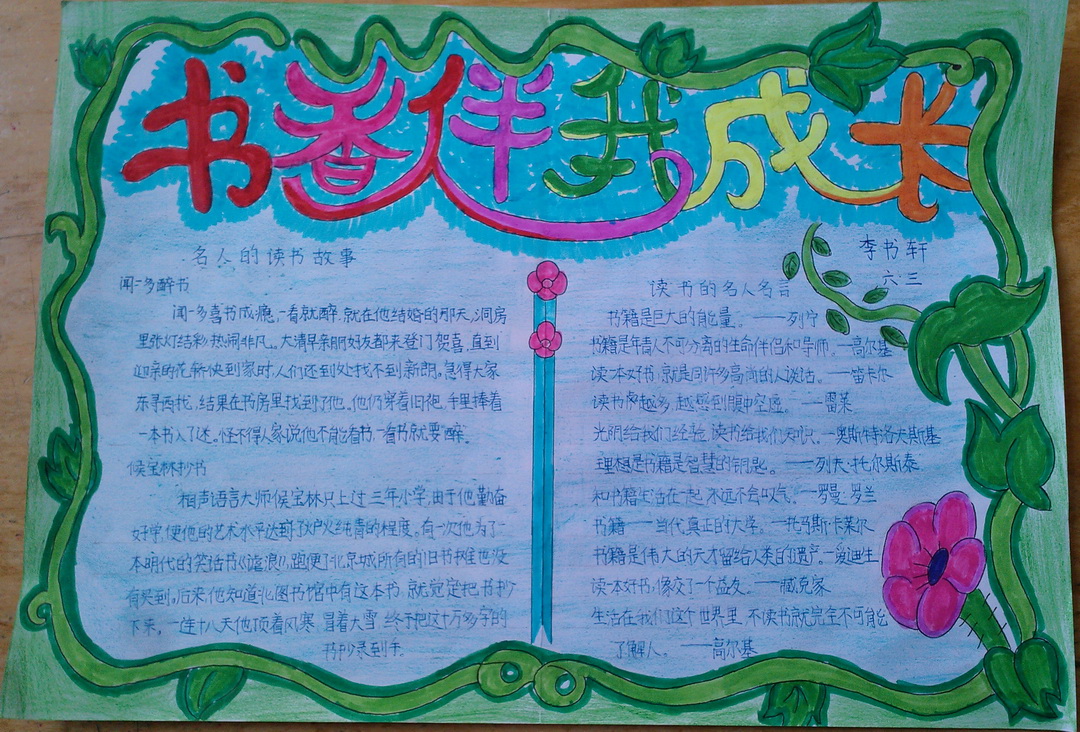 书香伴我成长
李书轩
六.三
名人的读书故事
闻一多醉书
闻一多喜书成瘾,一看就醉,就在他结婚的那天,洞房
里张灯结彩,热闹非凡。大清早亲朋好友都来登门贺喜,直到
迎亲的花轿快到家时,人们还到处找不到新郎。急得大家
东寻西找,结果在书房里找到了他。他仍穿着旧袍,手里捧着
一本书入了迷。怪不得人家说他不能看书,一看书就要"醉"。
候宝林抄书
相声语言大师候宝林只上过三年小学,由于他勤奋
好学,使他的艺术水平达到了炉火纯青的程度。有一次他为了一
本明代的笑话书《谑浪》,跑便了北京城所有的旧书摊也没
有买到。后来,他知道北图书馆中有这本书,就觉定把书抄
下来。一连十八天他顶着风寒,冒着大雪,终于把这十万多字的
书抄录到手。
读书的名人名言
书籍是巨大的能量。——列宁
书籍是年青人不可分离的生命伴侣和导师。—高尔基
读一本好书,就是同许多高尚的人谈话。—笛卡尔
读书越多,越感到腹中空虚。——雪莱
光阴给我们经验,读书给我们知识。—奥斯特洛夫斯基
理想是书籍是智慧的钥匙。——列夫·托尔斯泰
和书籍生活在一起,永远不会叹气。—罗曼·罗兰
书籍——当代真正的大学。—托马斯·卡莱尔
书籍是伟大的天才留给人类的遗产。—爱迪生
读一本好书,像交了一个益友。——臧克家
生活在我们这个世界里,不读书就完全不可能
了解人。——高尔基